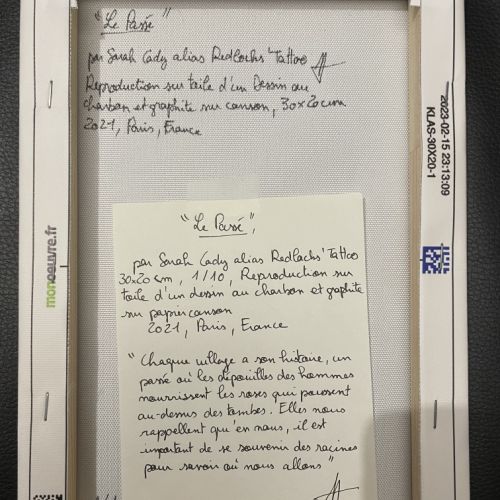 "Le Passé"
par Sarah Cady alias Redlocks' Tattoo
Reproduction sur toile d'un Dessin au
charbon et graphite sur canson, 30x20cm
2021, Paris, France
2023-02-15 23:13:09
KLAS-30X20-1
monoeuvre.fr
"Le Passé",
par Sarah Cady alias Redlocks' Tattoo
30x20 cm, 1/10, Reproduction sur
toile d'un dessin au charbon et graphite
sur papier canson
2021, Paris, France
"Chaque village a son histoire, un
passé où les dépouilles des hommes
nourrissent les roses qui poussent
au-dessus des tombes. Elles nous
rappellent qu'en nous, il est
important de se souvenir des racines
pour savoir où nous allons"